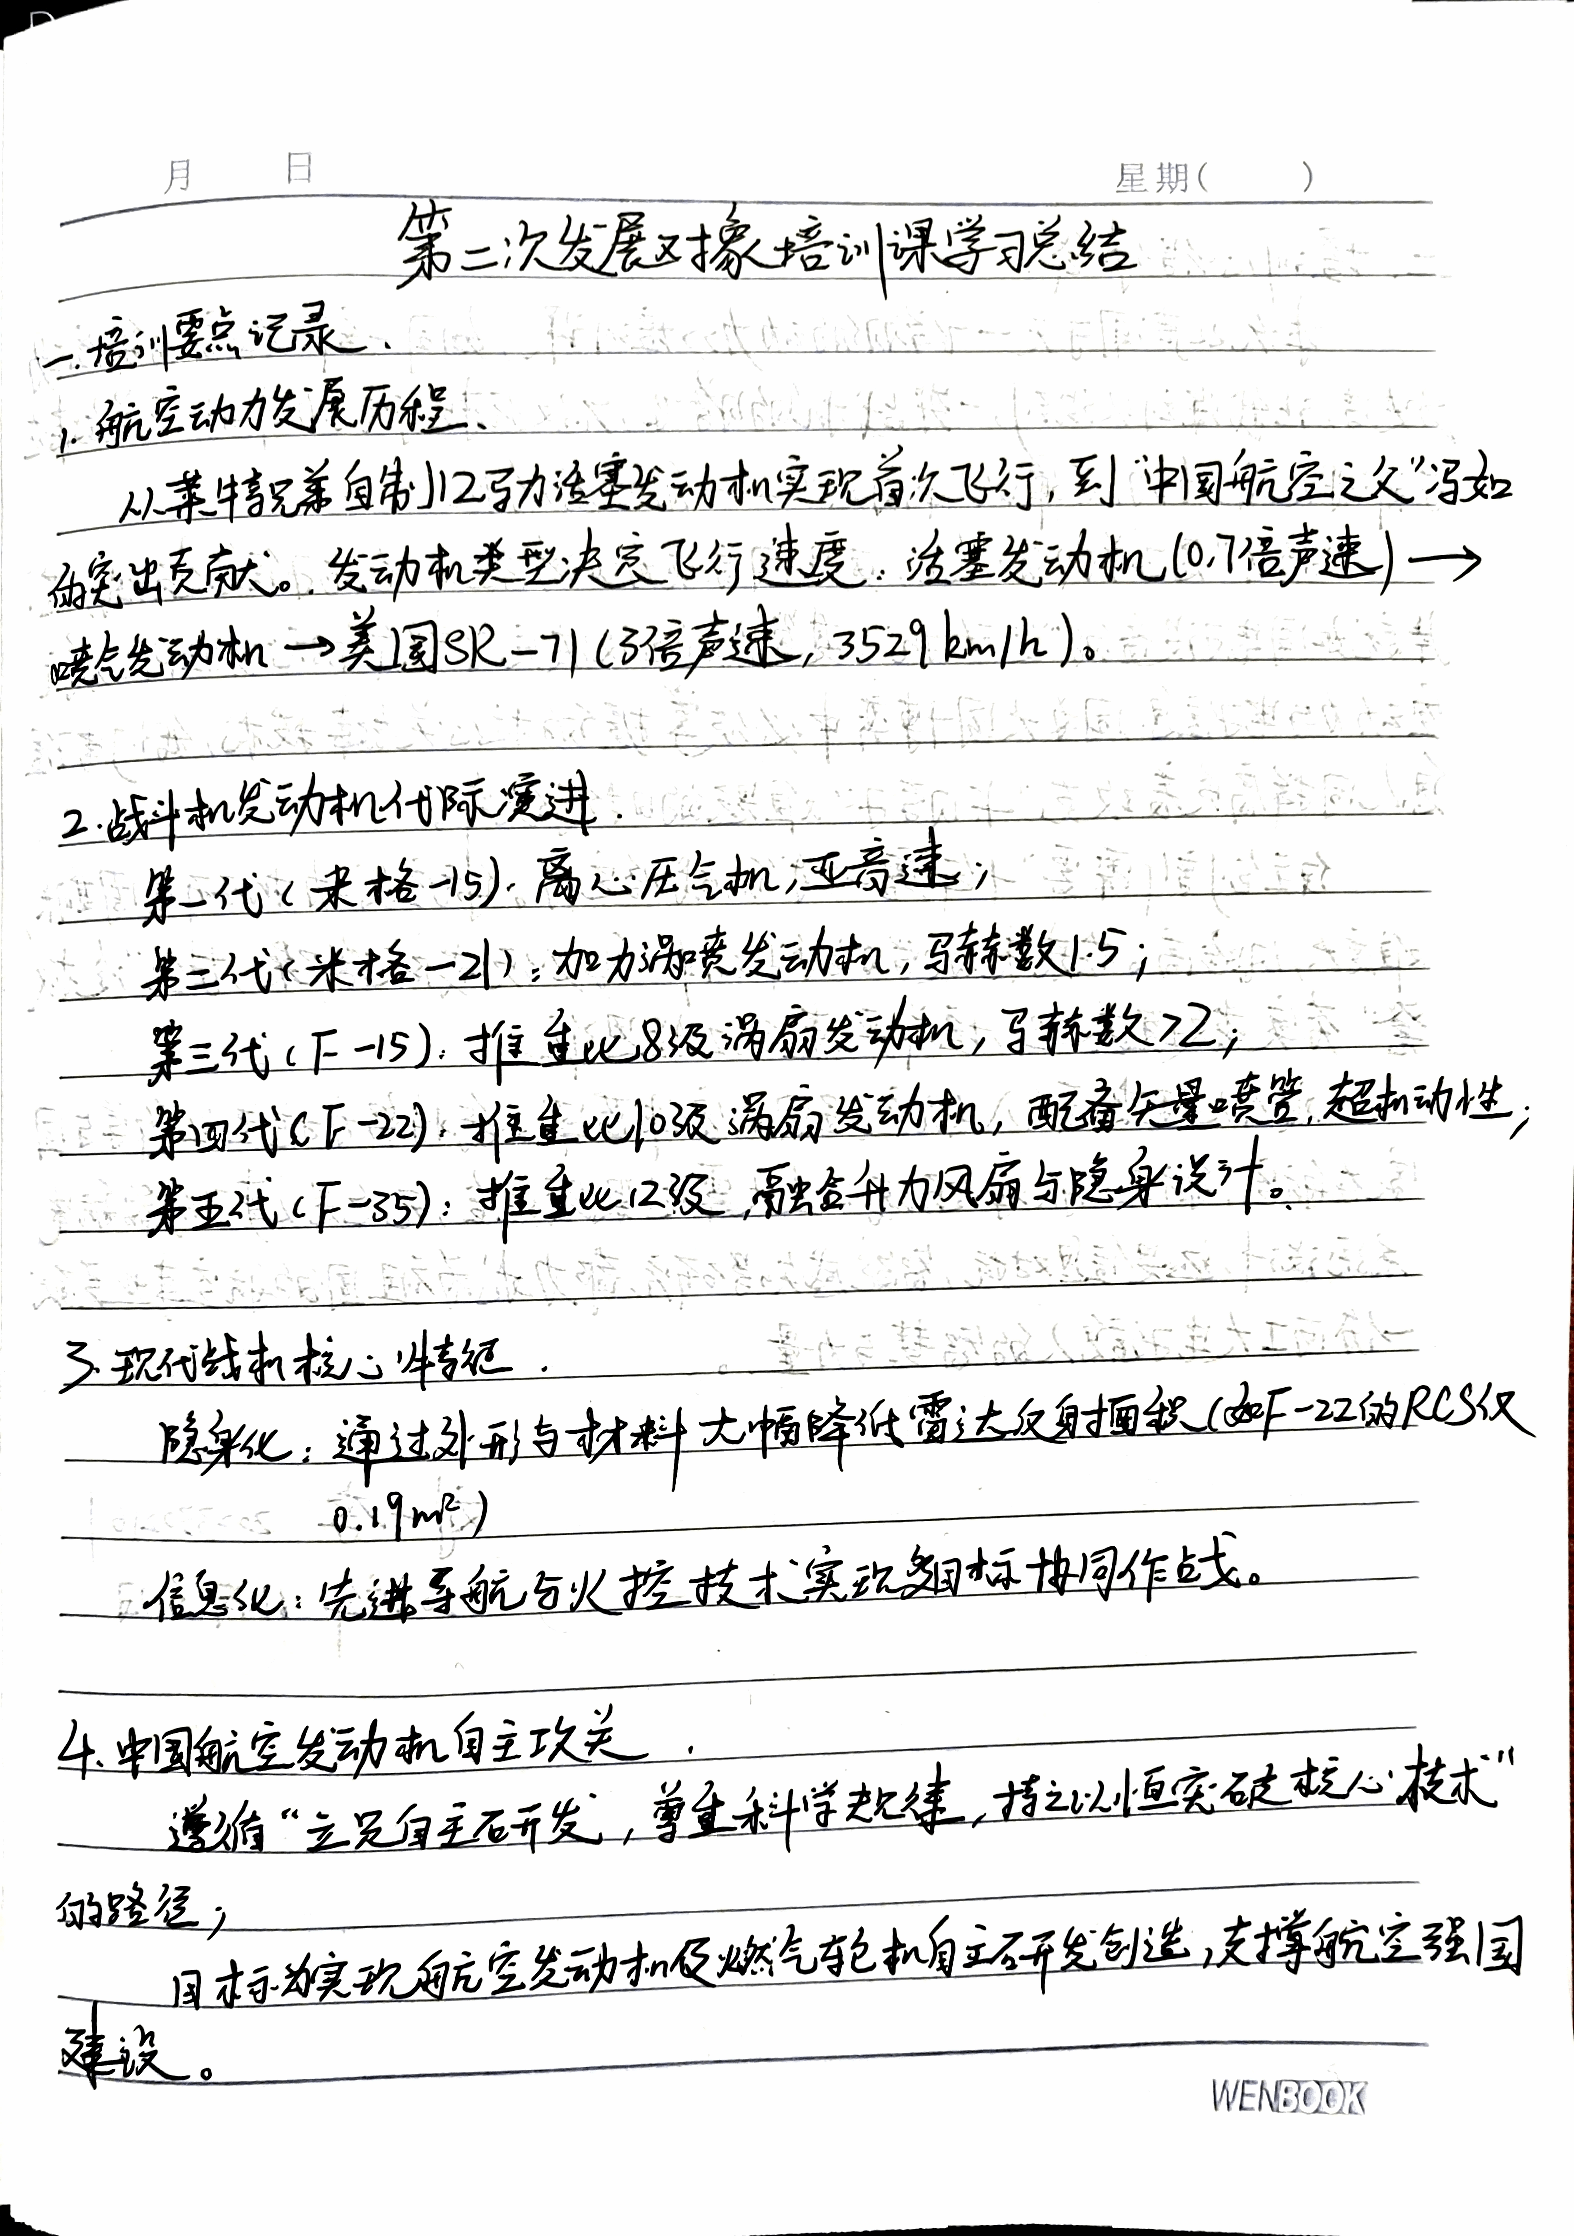 月 日 星期( )
第二次发展对象培训课学习总结
一.培训要点记录.
1.航空动力发展历程.
从莱特兄弟自制12马力活塞发动机实现首次飞行,到"中国航空之父"冯如
的突出贡献。发动机类型决定飞行速度:活塞发动机(0.7倍声速)→
喷气发动机→美国SR-71(3倍声速,3529km/h)。
2.战斗机发动机代际演进.
第一代(米格-15):离心压气机,亚音速;
第二代(米格-21):加力涡喷发动机,马赫数1.5;
第三代(F-15):推重比8级涡扇发动机,马赫数>2;
第四代(F-22):推重比10级涡扇发动机,配备矢量喷管,超机动性;
第五代(F-35):推重比12级,融合升力风扇与隐身设计。
3.现代战机核心特征.
隐身化:通过外形与材料大幅降低雷达反射面积(如F-22的RCS仅
0.19m²)
信息化:先进导航与火控技术实现多目标协同作战。
4.中国航空发动机自主攻关.
遵循"立足自主研发,尊重科学规律,持之以恒突破核心技术"
的路径;
目标为实现航空发动机及燃气轮机自主研发创造,支撑航空强国
建设。
WENBOOK